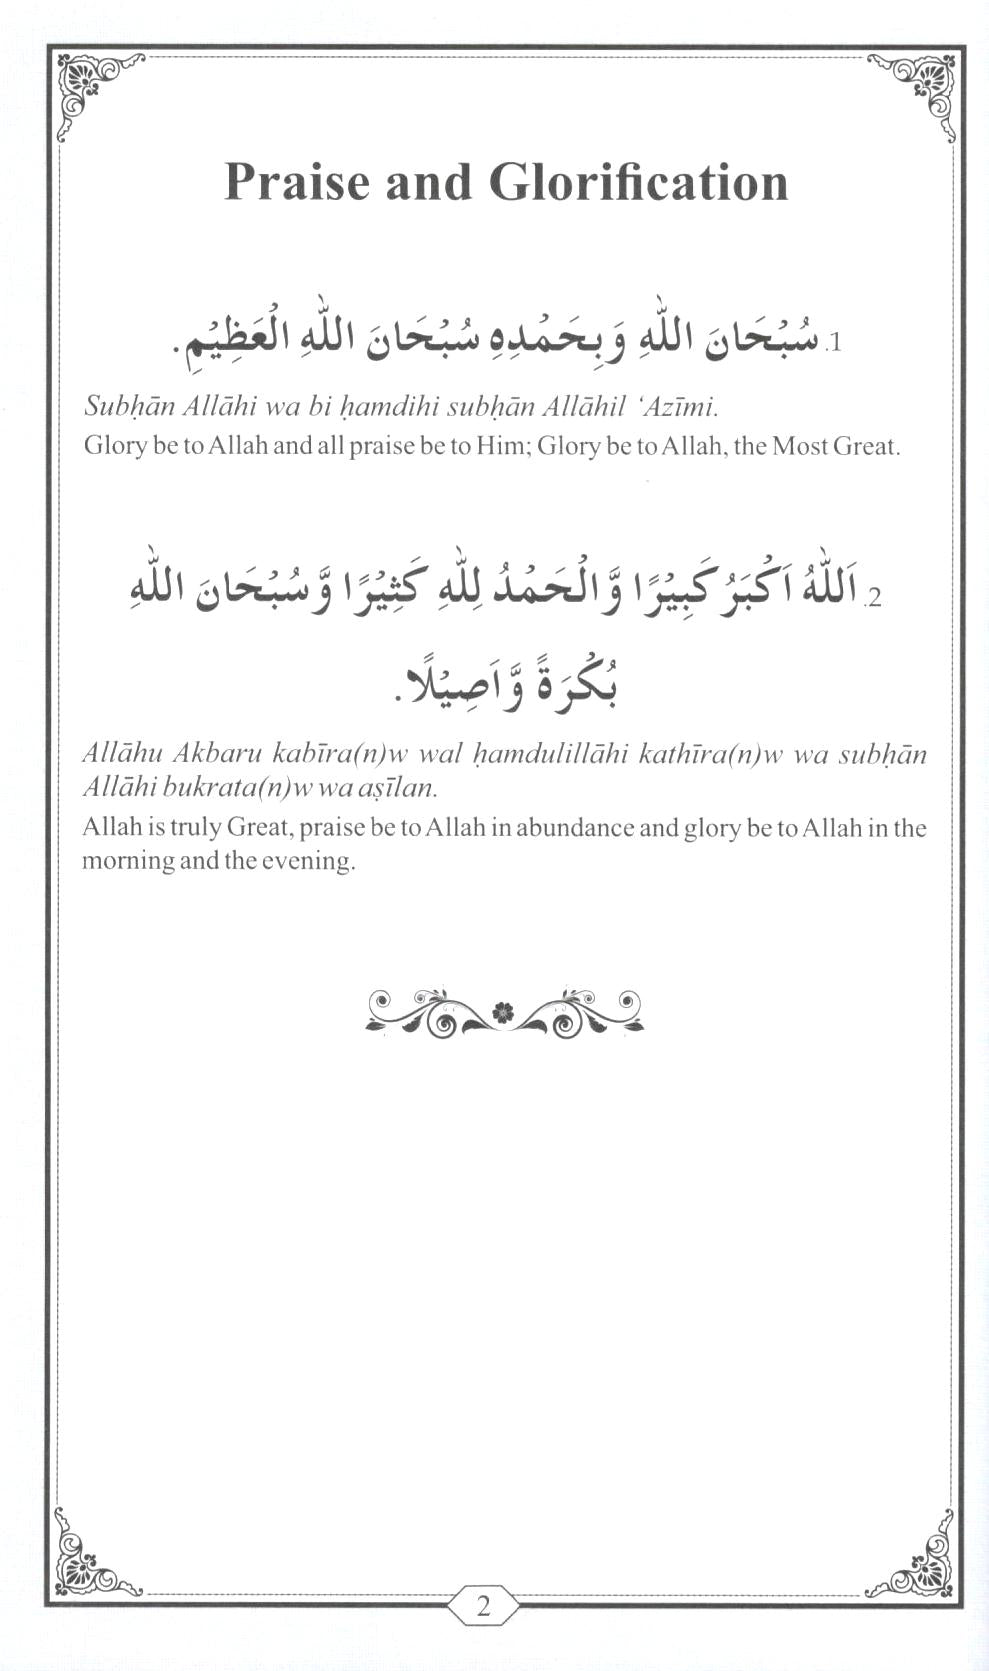 Praise and Glorification
1. سُبْحَانَ اللّٰهِ وَبِحَمْدِهِ سُبْحَانَ اللّٰهِ الْعَظِيْمِ.
Subḥān Allāhi wa bi ḥamdihi subḥān Allāhil ‘Azīmi.
Glory be to Allah and all praise be to Him; Glory be to Allah, the Most Great.
2. اَللّٰهُ اَكْبَرُ كَبِيْرًا وَّالْحَمْدُ لِلّٰهِ كَثِيْرًا وَّسُبْحَانَ اللّٰهِ
بُكْرَةً وَّاَصِيْلًا.
Allāhu Akbaru kabīra(n)w wal ḥamdulillāhi kathīra(n)w wa subḥān
Allāhi bukrata(n)w wa aṣīlan.
Allah is truly Great, praise be to Allah in abundance and glory be to Allah in the
morning and the evening.
2